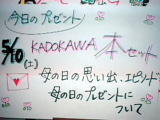 今日のプレゼント
5/10(土) KADOKAWA 本セット
母の日の思い出、エピソード
母の日のプレゼントに
ついて